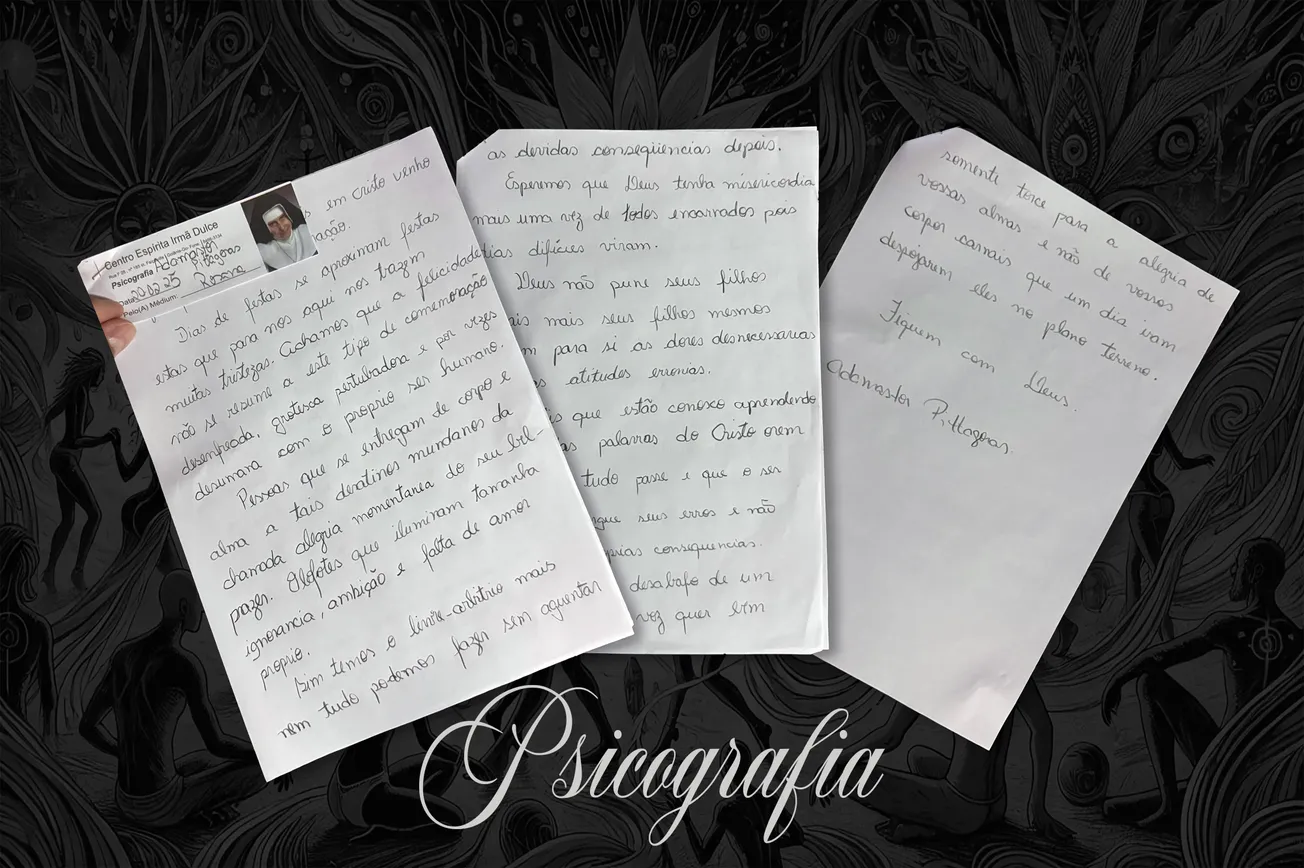 Centro Espírita Irmã Dulce
Psicografia Adamastor
Pitthagoras
Data: 20.02.25
Pelo(A) Médium: Rosana
em cristo venho
Dias de festas se aproximam festas
estas que para nos aqui nos trazem
muitas tristezas. Achamos que a felicidade
não se resume a este tipo de comemoração
desenfreada, grotesca perturbadora e por vezes
desumana com o proprio ser humano.
Pessoas que se entregam de corpo e
alma a tais desatinos mundanos da
chamada alegria momentanea do seu bel-
prazer. Olofotes que iluminam tamanha
ignorancia, ambição e falta de amor
proprio.
Sim temos o livre-arbitrio mais
nem tudo podemos fazer sem aguentar
as devidas conseqüencias depois.
Esperemos que Deus tenha misericordia
mais uma vez de todos encarnados pois
dias difíceis viram.
Deus não pune seus filhos
mais seus filhos mesmos
para si as dores desnecessarias
atitudes erronias.
que estão conosco aprendendo
palavras do Cristo orem
tudo passe e que o ser
seus erros e não
consequencias.
desabafo de um
voz quer bem
somente torce para a alegria de
vossas almas e não de vossos
corpos carnais que um dia iram
despojarem eles no plano terreno.
Fiquem com Deus.
Adamastor Pitthagoras.
Psicografia